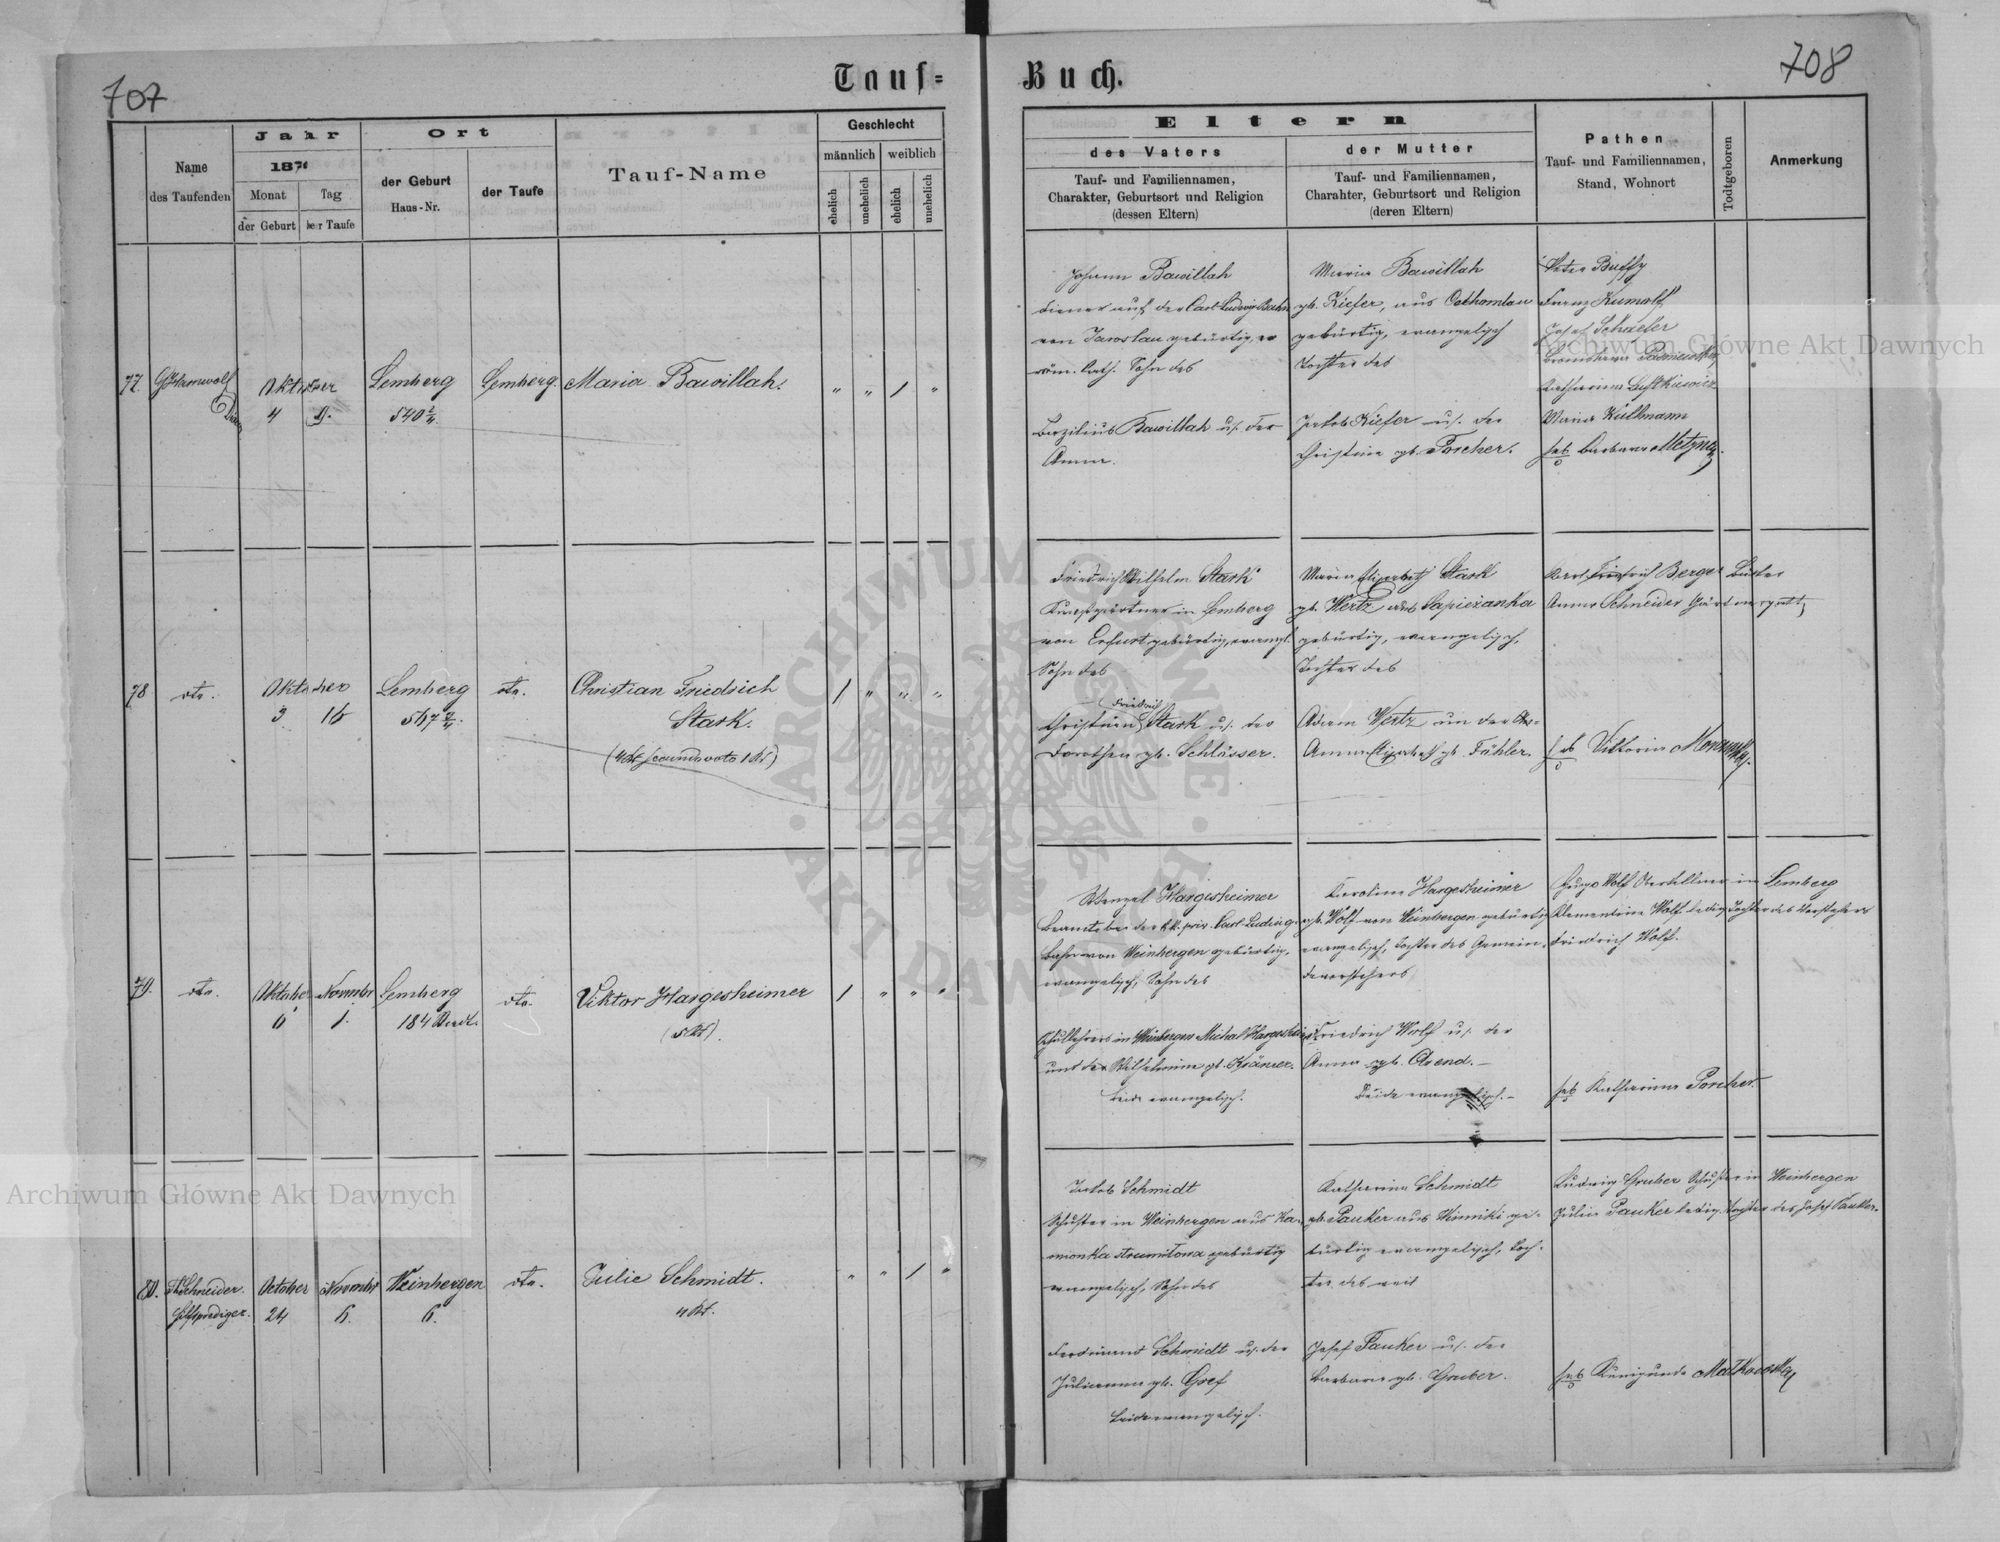 707
Tauf=
Buch.
708
Name
des Taufenden
Jahr
187
Monat
Tag
der Geburt
der Taufe
Ort
der Geburt
Haus-Nr.
der Taufe
Tauf-Name
Geschlecht
männlich
weiblich
ehelich
unehelich
ehelich
unehelich
Eltern
des Vaters
Tauf- und Familiennamen,
Charakter, Geburtsort und Religion
(dessen Eltern)
der Mutter
Tauf- und Familiennamen,
Charahter, Geburtsort und Religion
(deren Eltern)
Pathen
Tauf- und Familiennamen,
Stand, Wohnort
Todtgeboren
Anmerkung
77.
Oktober
4
9.
Lemberg
540 2/4
Lemberg.
Maria Bawillah.
" " / "
Johann Bawillah
Diener auf der Carl Ludwig Bahn
von Jaroslau gebürtig,
röm. kath. Sohn des
Bazilius Bawillah u. der
Anna.
Maria Bawillah
gb. Kiefer, aus
gebürtig, evangelisch
Tochter des
Jakob Kiefer u. der
Christine gb. Porcher.
Peter Buffy
Franz
Josef Schaefer
Maria Küllmann
heb Barbara Metzner.
78
dto.
Oktober
3
16
Lemberg
567 2/4.
dto.
Christian Friedrich
Stark.
/ " " "
Friedrich Wilhelm Stark
Kunstgärtner in Lemberg
von Erfurt gebürtig, evangl.
Sohn des
Friedrich
Christian Stark u. der
Dorothea gb. Schlösser.
Maria Elisabeth Stark
gb. Wertz aus Sapiezanka
gebürtig, evangelisch,
Tochter des
Adam Wertz un der
Anna Elisabeth gb. Fühler.
Friedrich Berger
Anna Schneider
heb Viktoria
79.
dto.
Oktober
6
Novembr
1.
Lemberg
184
dto.
Viktor Hargesheimer
/ " " "
Wenzel Hargesheimer
Beamte bei der k.k. priv. Carl Ludwig
Bahn von Weinbergen gebürtig,
evangelisch, Sohn des
Schullehrers in Weinbergen Michal Hargesheimer
und der Wilhelmine gb. Krämer.
beide evangelisch.
Karoline Hargesheimer
gb. Wolf von Weinbergen gebürtig
evangelisch, Tochter des Gemein-
devorstehers
Friedrich Wolf u. der
Anna gb. Arend.
Beide evangelisch.
Hugo Wolf in Lemberg
Klementine Wolf ledig Tochter des Vorstehers
Friedrich Wolf.
heb Katharina Porcher.
80.
Schneider.
Hilfsprediger.
October
24
Novembr
6.
Weinbergen
6.
dto.
Julie Schmidt.
" " / "
Jakob Schmidt
Schuster in Weinbergen aus Ka-
mionka strumilowa gebürtig
evangelisch, Sohn des
Ferdinand Schmidt u. der
Julianna gb. Graf
beide evangelisch.
Katharina Schmidt
gb. Pauker aus Winniki ge-
bürtig evangelisch, Toch-
ter des
Josef Pauker u. der
Barbara gb. Gruber.
Ludwig Gruber Schuster in Weinbergen
Julie Pauker ledig, Tochter des Josef Pauker.
heb Kunigunde Malkowska
Archiwum Główne Akt Dawnych
Archiwum Główne Akt Dawnych
ARCHIWUM GŁÓWNE AKT DAWNYCH